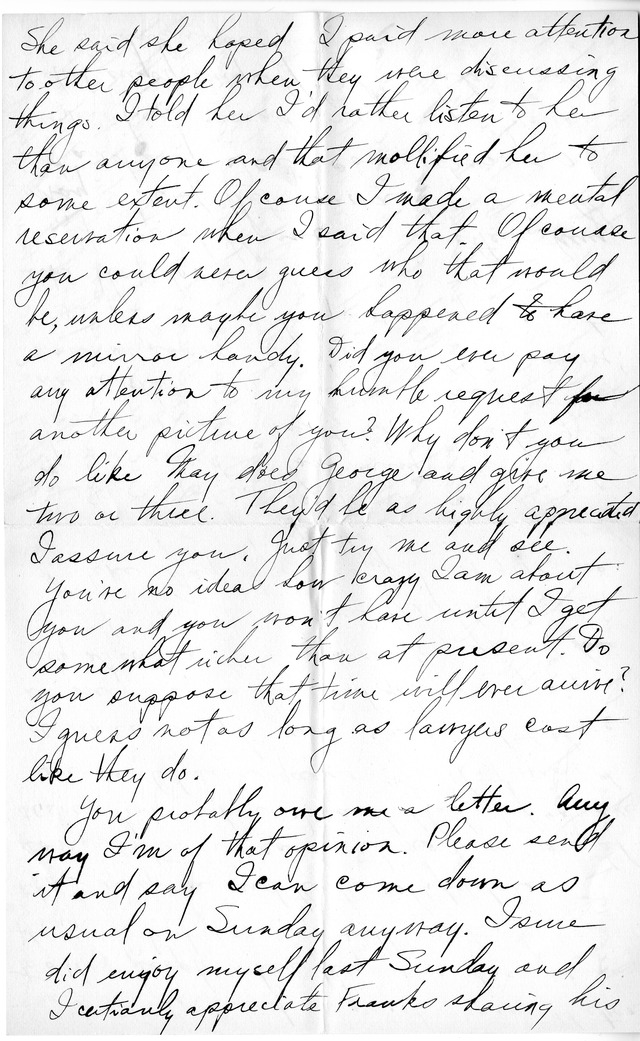 She said she hoped I paid more attention
to other people when they were discussing
things. I told her I'd rather listen to her
than anyone and that mollified her to
some extent. Of couse I made a mental
reservation when I said that. Of course
you could never guess who that would
be, unless maybe you happened to have
a mirror handy. Did you ever pay
any attention to my humble request for
another picture of you? Why don't you
do like May does George and give me
two or three. They'd be as highly appreciated
I assure you. Just try me and see.
You've no idea how crazy I am about
you and you won't have until I get
somewhat richer than at present. Do
you suppose that time will ever arrive?
I guess not as long as lawyers cost
like they do.
You probably owe me a letter. Any
way I'm of that opinion. Please send
it and say I can come down as
usual on Sunday anyway. I sure
did enjoy myself last Sunday and
I certianly appreciate Franks sharing his